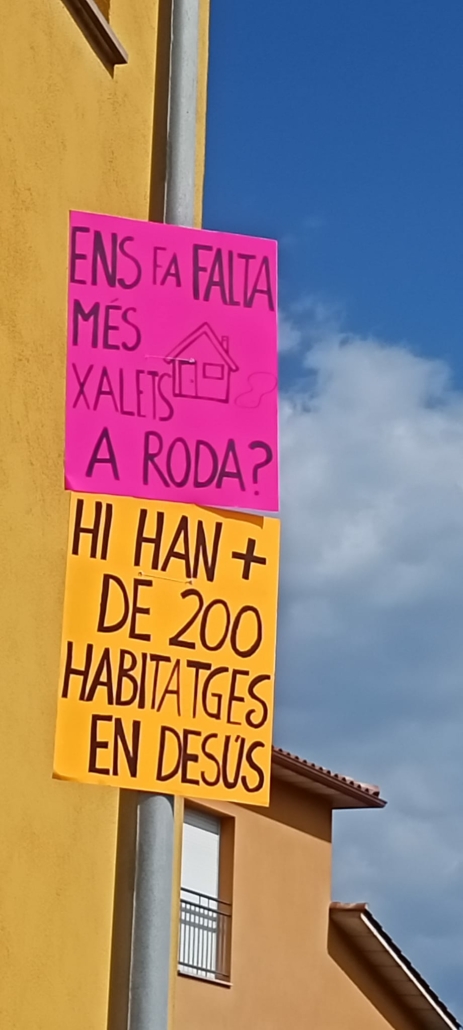 ENS FA FALTA
MÉS
XALETS
A RODA?
HI HAN +
DE 200
HABITATGES
EN DESÚS